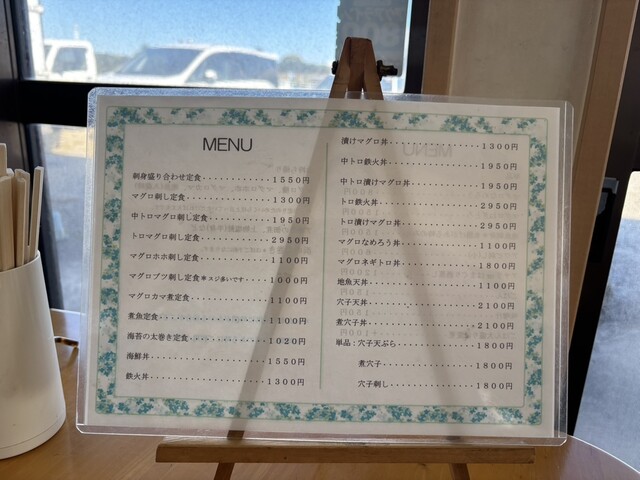 MENU
刺身盛り合わせ定食・・・・・・・・・1550円
マグロ刺し定食・・・・・・・・・・・1300円
中トロマグロ刺し定食・・・・・・・・1950円
トロマグロ刺し定食・・・・・・・・・2950円
マグロホホ刺し定食・・・・・・・・・1100円
マグロブツ刺し定食＊スジ多いです・・・・1000円
マグロカマ煮定食・・・・・・・・・・1100円
煮魚定食・・・・・・・・・・・・・・1100円
海苔の太巻き定食・・・・・・・・・・1020円
海鮮丼・・・・・・・・・・・・・・・1550円
鉄火丼・・・・・・・・・・・・・・・1300円
漬けマグロ丼・・・・・・・・・・・・1300円
中トロ鉄火丼・・・・・・・・・・・・1950円
中トロ漬けマグロ丼・・・・・・・・・1950円
トロ鉄火丼・・・・・・・・・・・・・2950円
トロ漬けマグロ丼・・・・・・・・・・2950円
マグロなめろう丼・・・・・・・・・・1100円
マグロネギトロ丼・・・・・・・・・・1800円
地魚天丼・・・・・・・・・・・・・・1100円
穴子天丼・・・・・・・・・・・・・・2100円
煮穴子丼・・・・・・・・・・・・・・2100円
単品：穴子天ぷら・・・・・・・・・・1800円
煮穴子・・・・・・・・・・・・・1800円
穴子刺し・・・・・・・・・・・・1800円